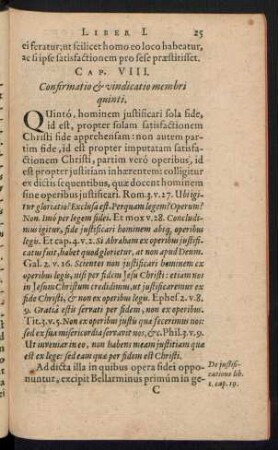 LIBER I. 25
ei feratur; ut scilicet homo eo loco habeatur,
ac si ipse satisfactionem pro sese præstitisset.
CAP. VIII.
Confirmatio & vindicatio membri
quinti.
Quintó, hominem justificari sola fide,
id est, propter solam satisfactionem
Christi fide apprehensam: non autem par-
tim fide, id est propter imputatam satisfa-
ctionem Christi, partim veró operibus, id
est propter justitiam inhærentem: colligitur
ex dictis sequentibus, quæ docent hominem
sine operibus justificari. Rom. 3. v. 27. Ubi igi-
tur gloriatio? Exclusa est. Per quam legem? Operum?
Non. Imò per legem fidei. Et mox v. 28. Concludi-
mus igitur, fide justificari hominem absq; operibus
legis. Et cap. 4. v. 2. Si Abraham ex operibus justifi-
catus fuit, habet quod glorietur, at non apud Deum.
Gal. 2. v. 16. Scientes non justificari hominem ex
operibus legis, nisi per fidem Jesu Christi: etiam nos
in Jesum Christum credidimus, ut justificaremur ex
fide Christi, & non ex operibus legis. Ephes. 2. v. 8.
9. Gratiâ estis servati per fidem, non ex operibus.
Tit. 3. v. 5. Non ex operibus justis quæ fecerimus nos:
sed ex sua misericordia servavit nos, &c. Phil. 3. v. 9.
Ut inveniar in eo, non habens meam justitiam quæ
est ex lege: sed eam quæ per fidem est Christi.
Ad dicta illa in quibus opera fidei oppo-
nuntur, excipit Bellarminus primùm in ge-
De justifi-
catione lib.
1. cap. 19.
C